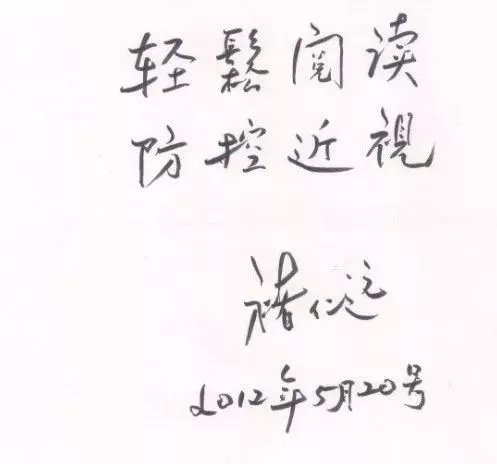 轻鬆阅读
防控近視
褚仁远
2012年5月20号